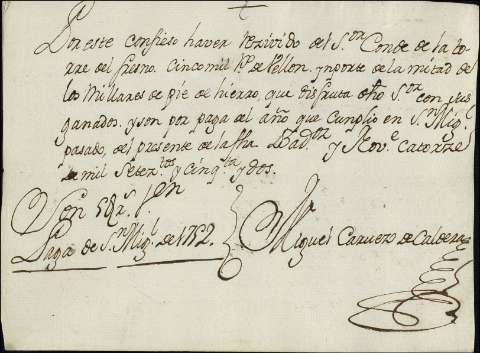 Por este confieso haver rezivido del S.or Conde de la to
rre del fresno. Cinco mil R.s de Vellon. ynporte de la mitad de
los Millares de pie de hierro, que disfruta dho S.or con sus
ganados. y son por paga al año que cumplio en S.n Mig.l
pasado, del presente de la fha Bad.oz y Nov.e catorze
de mil Setez.tos y cinq.ta y dos.
Son 5U R.s V.on
Paga de S.n Mig.l de 1752.
Miguel Carvero de Caldera